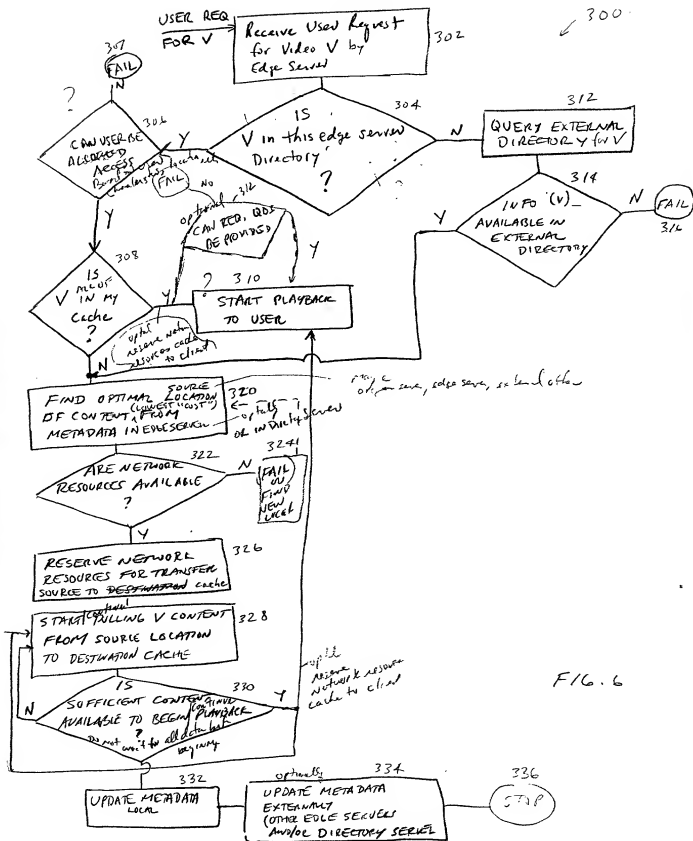 USER REQ
FOR V
Receive User Request
for Video V by
Edge Server
302
300
307
FAIL
N
?
306
CAN USER BE
ALLOWED
ACCESS
Y
304
IS
V in this edge server
Directory
?
N
312
QUERY EXTERNAL
DIRECTORY for V
314
INFO (V)
AVAILABLE IN
EXTERNAL
DIRECTORY
N
FAIL
316
Y
FAIL
No
optional 312
CAN REQ. QOS
BE PROVIDED
Y
Y
308
IS
ALL OF
V IN MY
Cache
?
Y
N
?
310
START PLAYBACK
TO USER
reserve
resources cache
to client
FIND OPTIMAL SOURCE LOCATION
OF CONTENT (LOWEST "COST") FROM
METADATA IN EDGE SERVER
320
optionally
OR IN Directory Server
origin server, edge server, external other
322
ARE NETWORK
RESOURCES AVAILABLE
?
N
3241
FAIL
OR
FIND
NEW
Y
326
RESERVE NETWORK
RESOURCES FOR TRANSFER
SOURCE TO DESTINATION cache
START/continue PULLING V CONTENT
FROM SOURCE LOCATION
TO DESTINATION CACHE
328
reserve
network resource
cache to client
IS
330
SUFFICIENT CONTENT
AVAILABLE TO BEGIN/continue PLAYBACK
?
Do not wait for all data before
beginning
N
Y
FIG. 6
332
UPDATE METADATA
LOCAL
optionally
334
UPDATE METADATA
EXTERNALLY
(OTHER EDGE SERVERS
AND/OR DIRECTORY SERVER
336
STOP